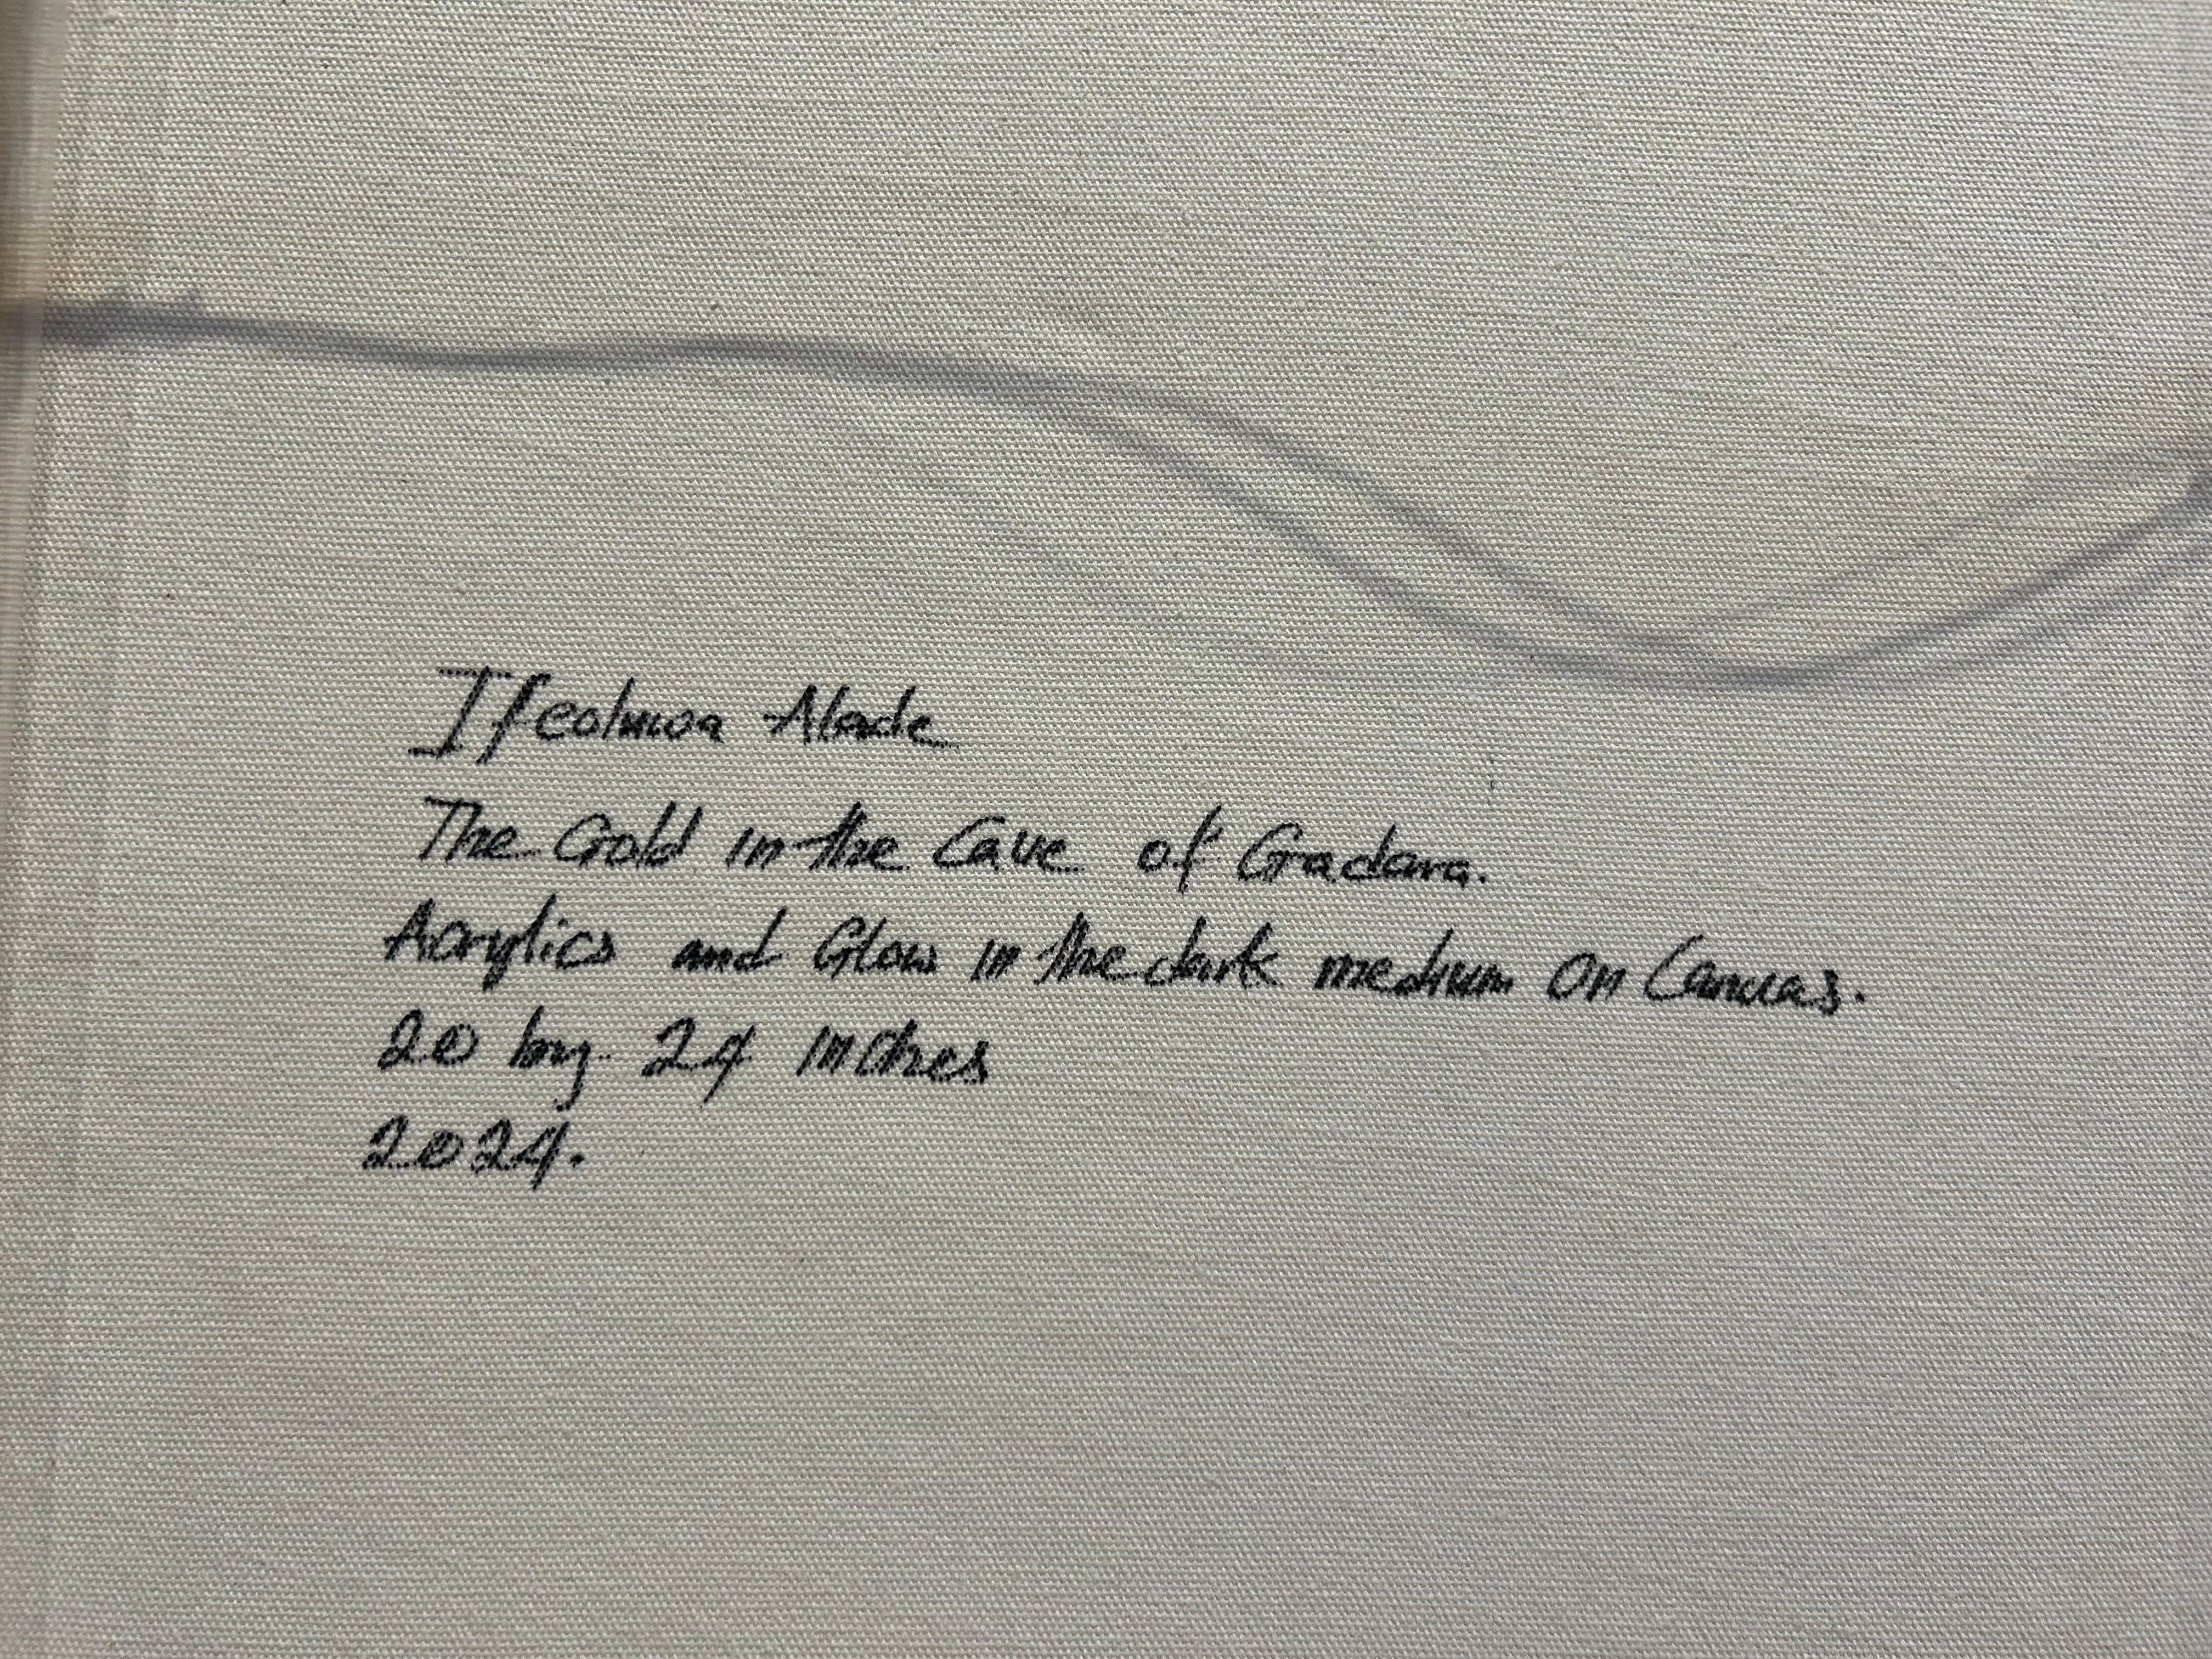 Ifeoluwa Alade
The Gold in the Cave of Gadara.
Acrylics and Glow in the dark medium on Canvas.
20 by 24 inches
2024.